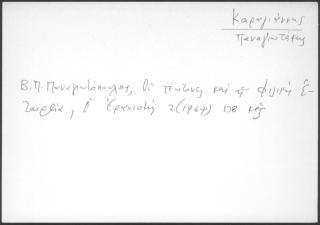 Καραγιάννης
Παναγιωτάκης
Β. Π. Παναγιωτόπουλος, Οἱ τέκτονες καὶ ἡ Φιλικὴ Ἑ-
ταιρεία, Ὁ Ἐρανιστής 2 (1964) 138 κἑξ